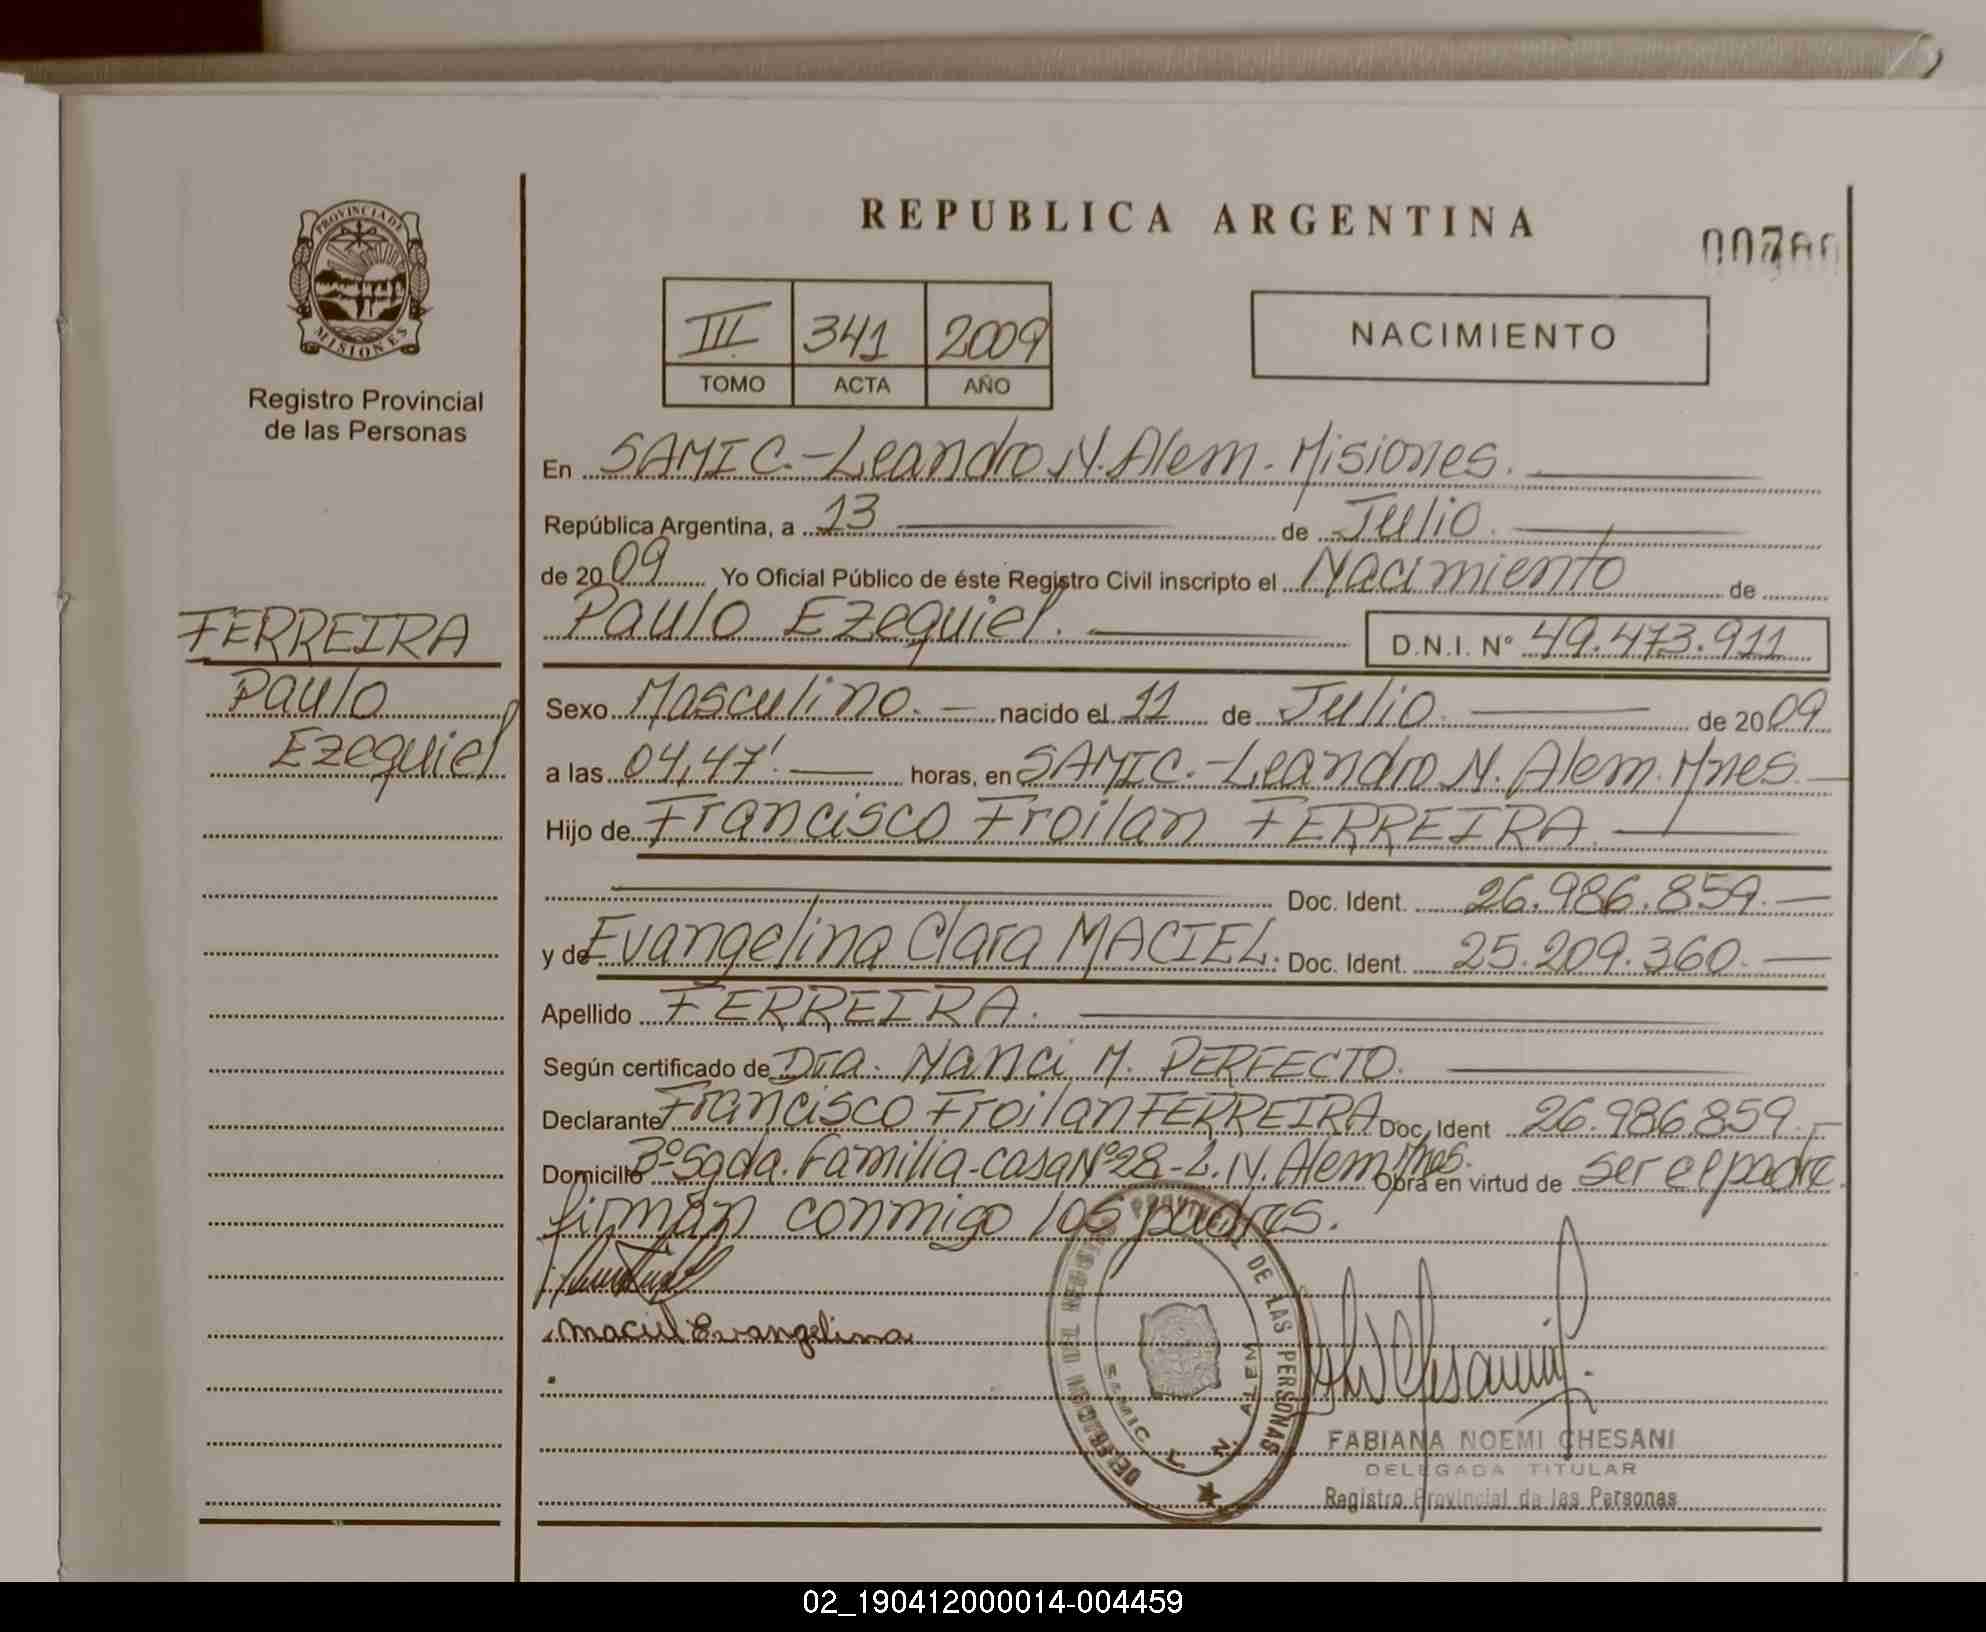 REPUBLICA ARGENTINA
PROVINCIA DE
MISIONES
Registro Provincial
de las Personas
III. 341 2009
TOMO ACTA AÑO
NACIMIENTO
En SAMIC.-Leandro N. Alem. Misiones.
República Argentina, a 13 de Julio.
de 2009 Yo Oficial Público de éste Registro Civil inscripto el Nacimiento de
Paulo Ezequiel. D.N.I. Nº 49.473.911
FERREIRA
Paulo
Ezequiel
Sexo Masculino. nacido el 11 de Julio. de 2009
a las 04,47'. horas, en SAMIC.-Leandro N. Alem. Mnes.
Hijo de Francisco Froilan FERREIRA.
Doc. Ident. 26.986.859.
y de Evangelina Clara MACIEL. Doc. Ident. 25.209.360.
Apellido FERREIRA.
Según certificado de Dra. Nanci M. PERFECTO.
Declarante Francisco Froilan FERREIRA Doc. Ident 26.986.859.
Domicilio 3º Sgda. Familia-casa Nº 28-L. N. Alem. Mnes. Obra en virtud de ser el padre
firman conmigo los padres.
Maciel Evangelina
DELEGACION DEL REGISTRO PROVINCIAL DE LAS PERSONAS
SAMIC L. N. ALEM
FABIANA NOEMI CHESANI
DELEGADA TITULAR
Registro Provincial de las Personas
02_190412000014-004459